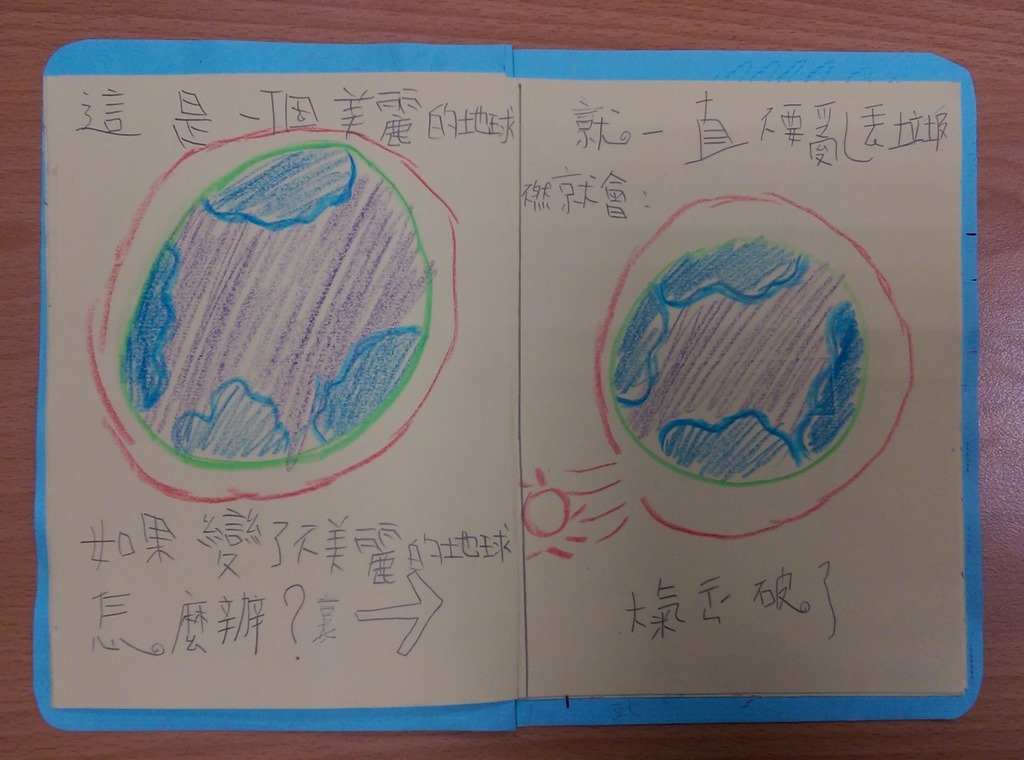 這是一個美麗的地球
如果變了不美麗的地球
怎麼辦？
就一直不要亂丟垃圾
就會：
大氣 破了